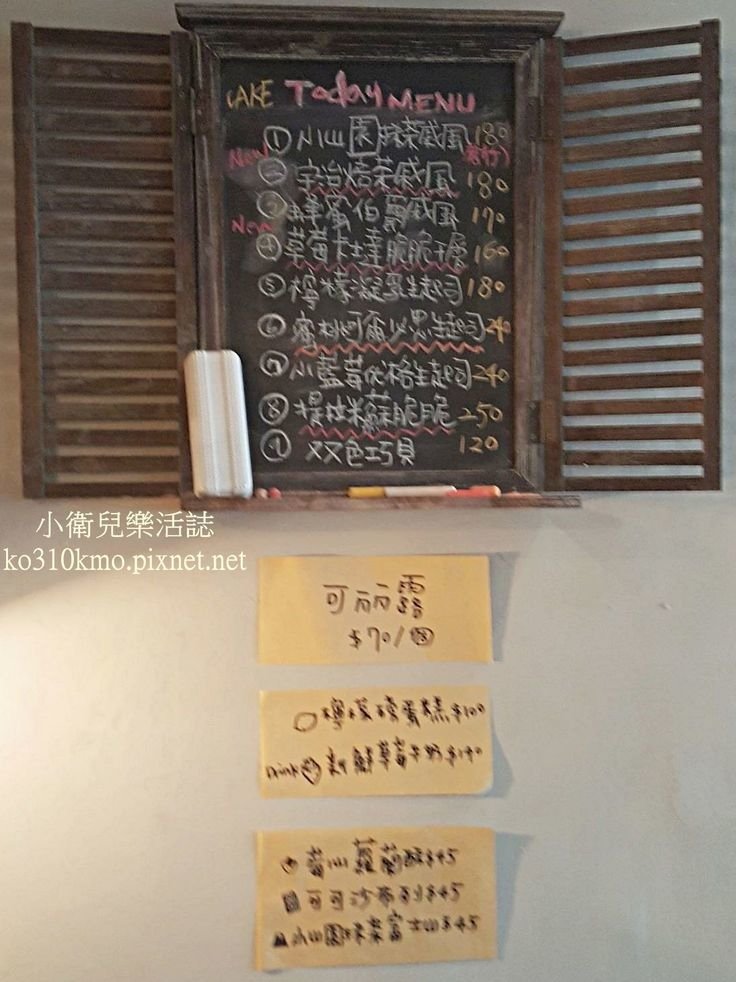 CAKE Today MENU
① 小山園抹茶戚風 180
New ② 宇治焙茶戚風 180
③ 蜂蜜伯爵戚風 170
New ④ 草莓卡士達脆脆千層 160
⑤ 檸檬凝乳生起司 180
⑥ 蜜桃可爾必思生起司 240
⑦ 小藍莓优格生起司 240
⑧ 提拉米蘇脆脆 250
⑨ 双色巧貝 120
小衛兒樂活誌
ko310kmo.pixnet.net
可丽露
$70/個
檸檬磅蛋糕$100
Drink 新鮮草莓牛奶$190
蘿蘭酥$45
可可沙布列$45
小山園抹茶富士山$45